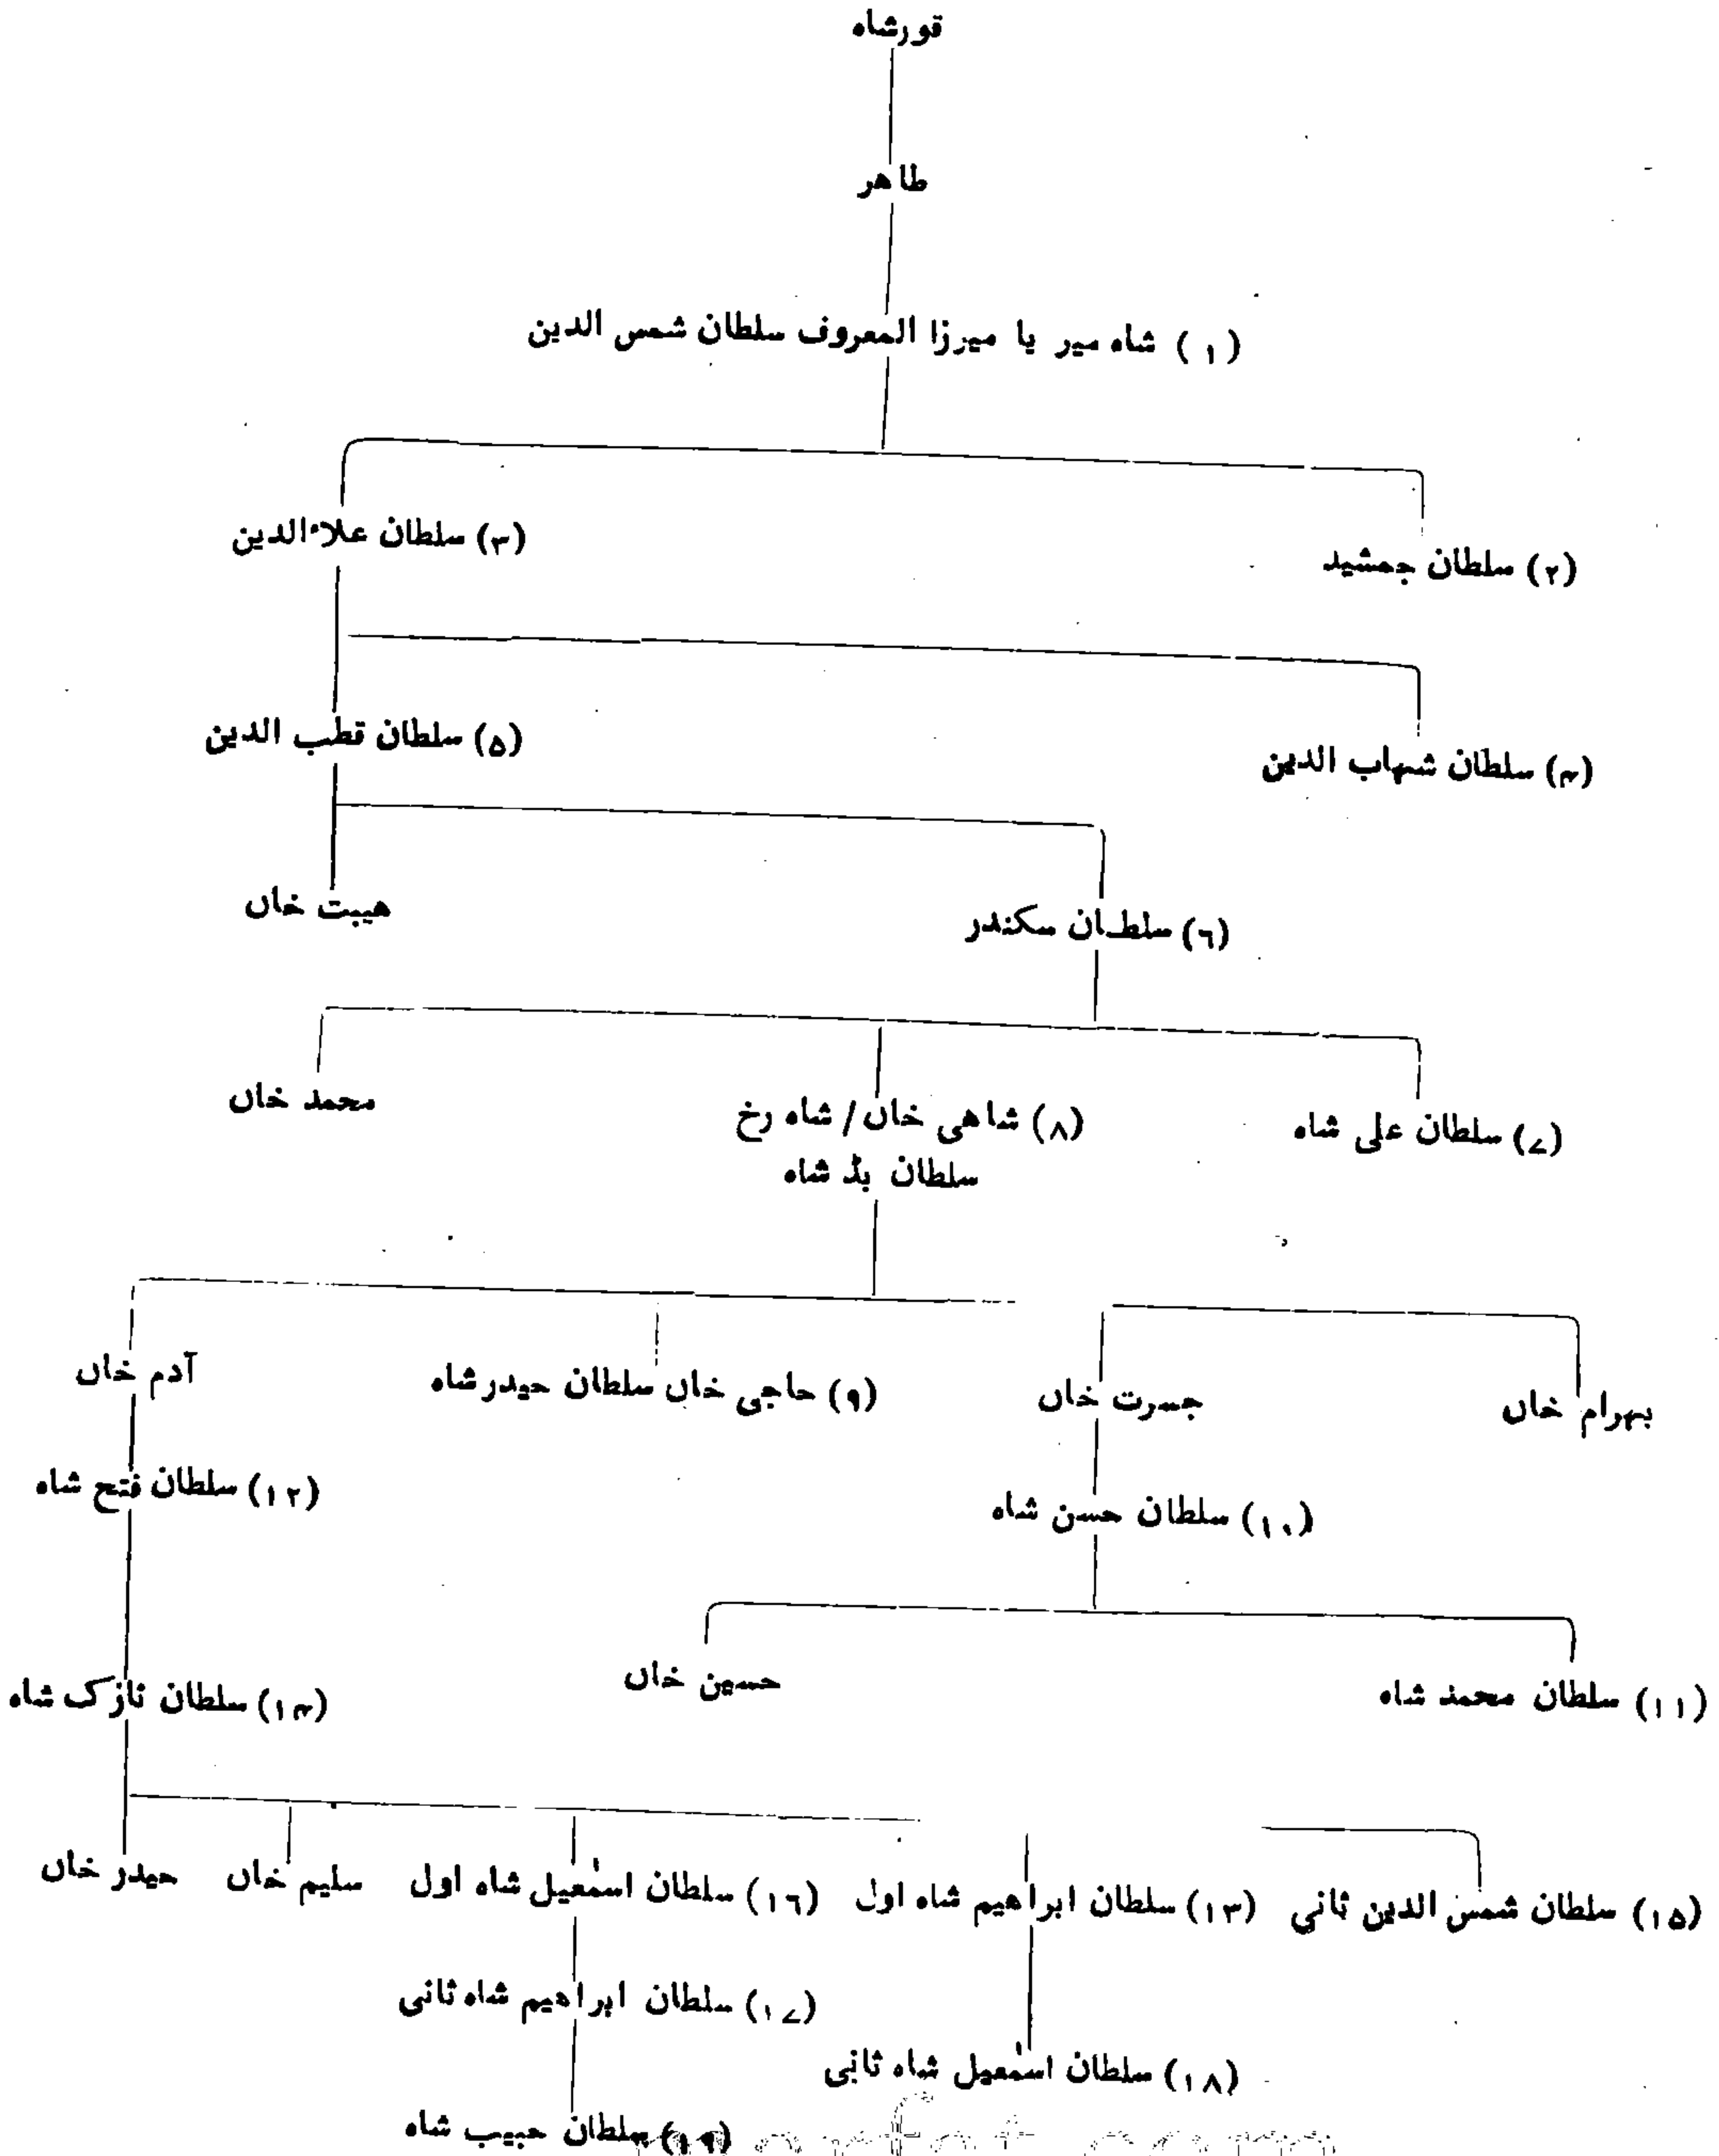 قورشاه
طاهر
(۱) شاه میر یا میرزا المعروف سلطان شمس الدین
(۲) سلطان جمشید
(۳) سلطان علاءالدین
(۴) سلطان شہاب الدین
(۵) سلطان قطب الدین
(۶) سلطان سکندر
ھیبت خاں
(۷) سلطان علی شاه
(۸) شاھی خاں / شاه رخ
سلطان بڈ شاه
محمد خاں
بہرام خاں
جسرت خاں
(۹) حاجی خاں سلطان حیدر شاه
آدم خاں
(۱۰) سلطان حسن شاه
(۱۲) سلطان فتح شاه
(۱۱) سلطان محمد شاه
حسین خاں
(۱۴) سلطان نازک شاه
(۱۵) سلطان شمس الدین ثانی
(۱۳) سلطان ابراھیم شاه اول
(۱۶) سلطان اسمٰعیل شاه اول
سلیم خاں
حیدر خاں
(۱۷) سلطان ابراھیم شاه ثانی
(۱۸) سلطان اسمٰعیل شاه ثانی
(۱۹) سلطان حبیب شاه